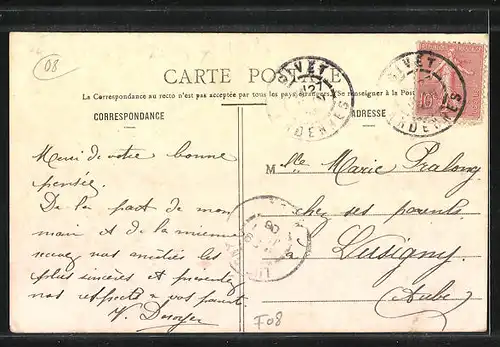 08
CARTE POSTALE
La Correspondance au recto n'est pas acceptée par tous les pays étrangers. (Se renseigner à la Poste
CORRESPONDANCE
ADRESSE
GIVET
ARDENNES
GIVET
ARDENNES
10
Merci de votre bonne
pensée.
De la part de mon
mari et de la mienne
recevez nos amitiés les
plus sincères et présentez
nos respects à vos parents.
M lle Marie Pralong
chez ses parents
à Lusigny
(Aube)
F08